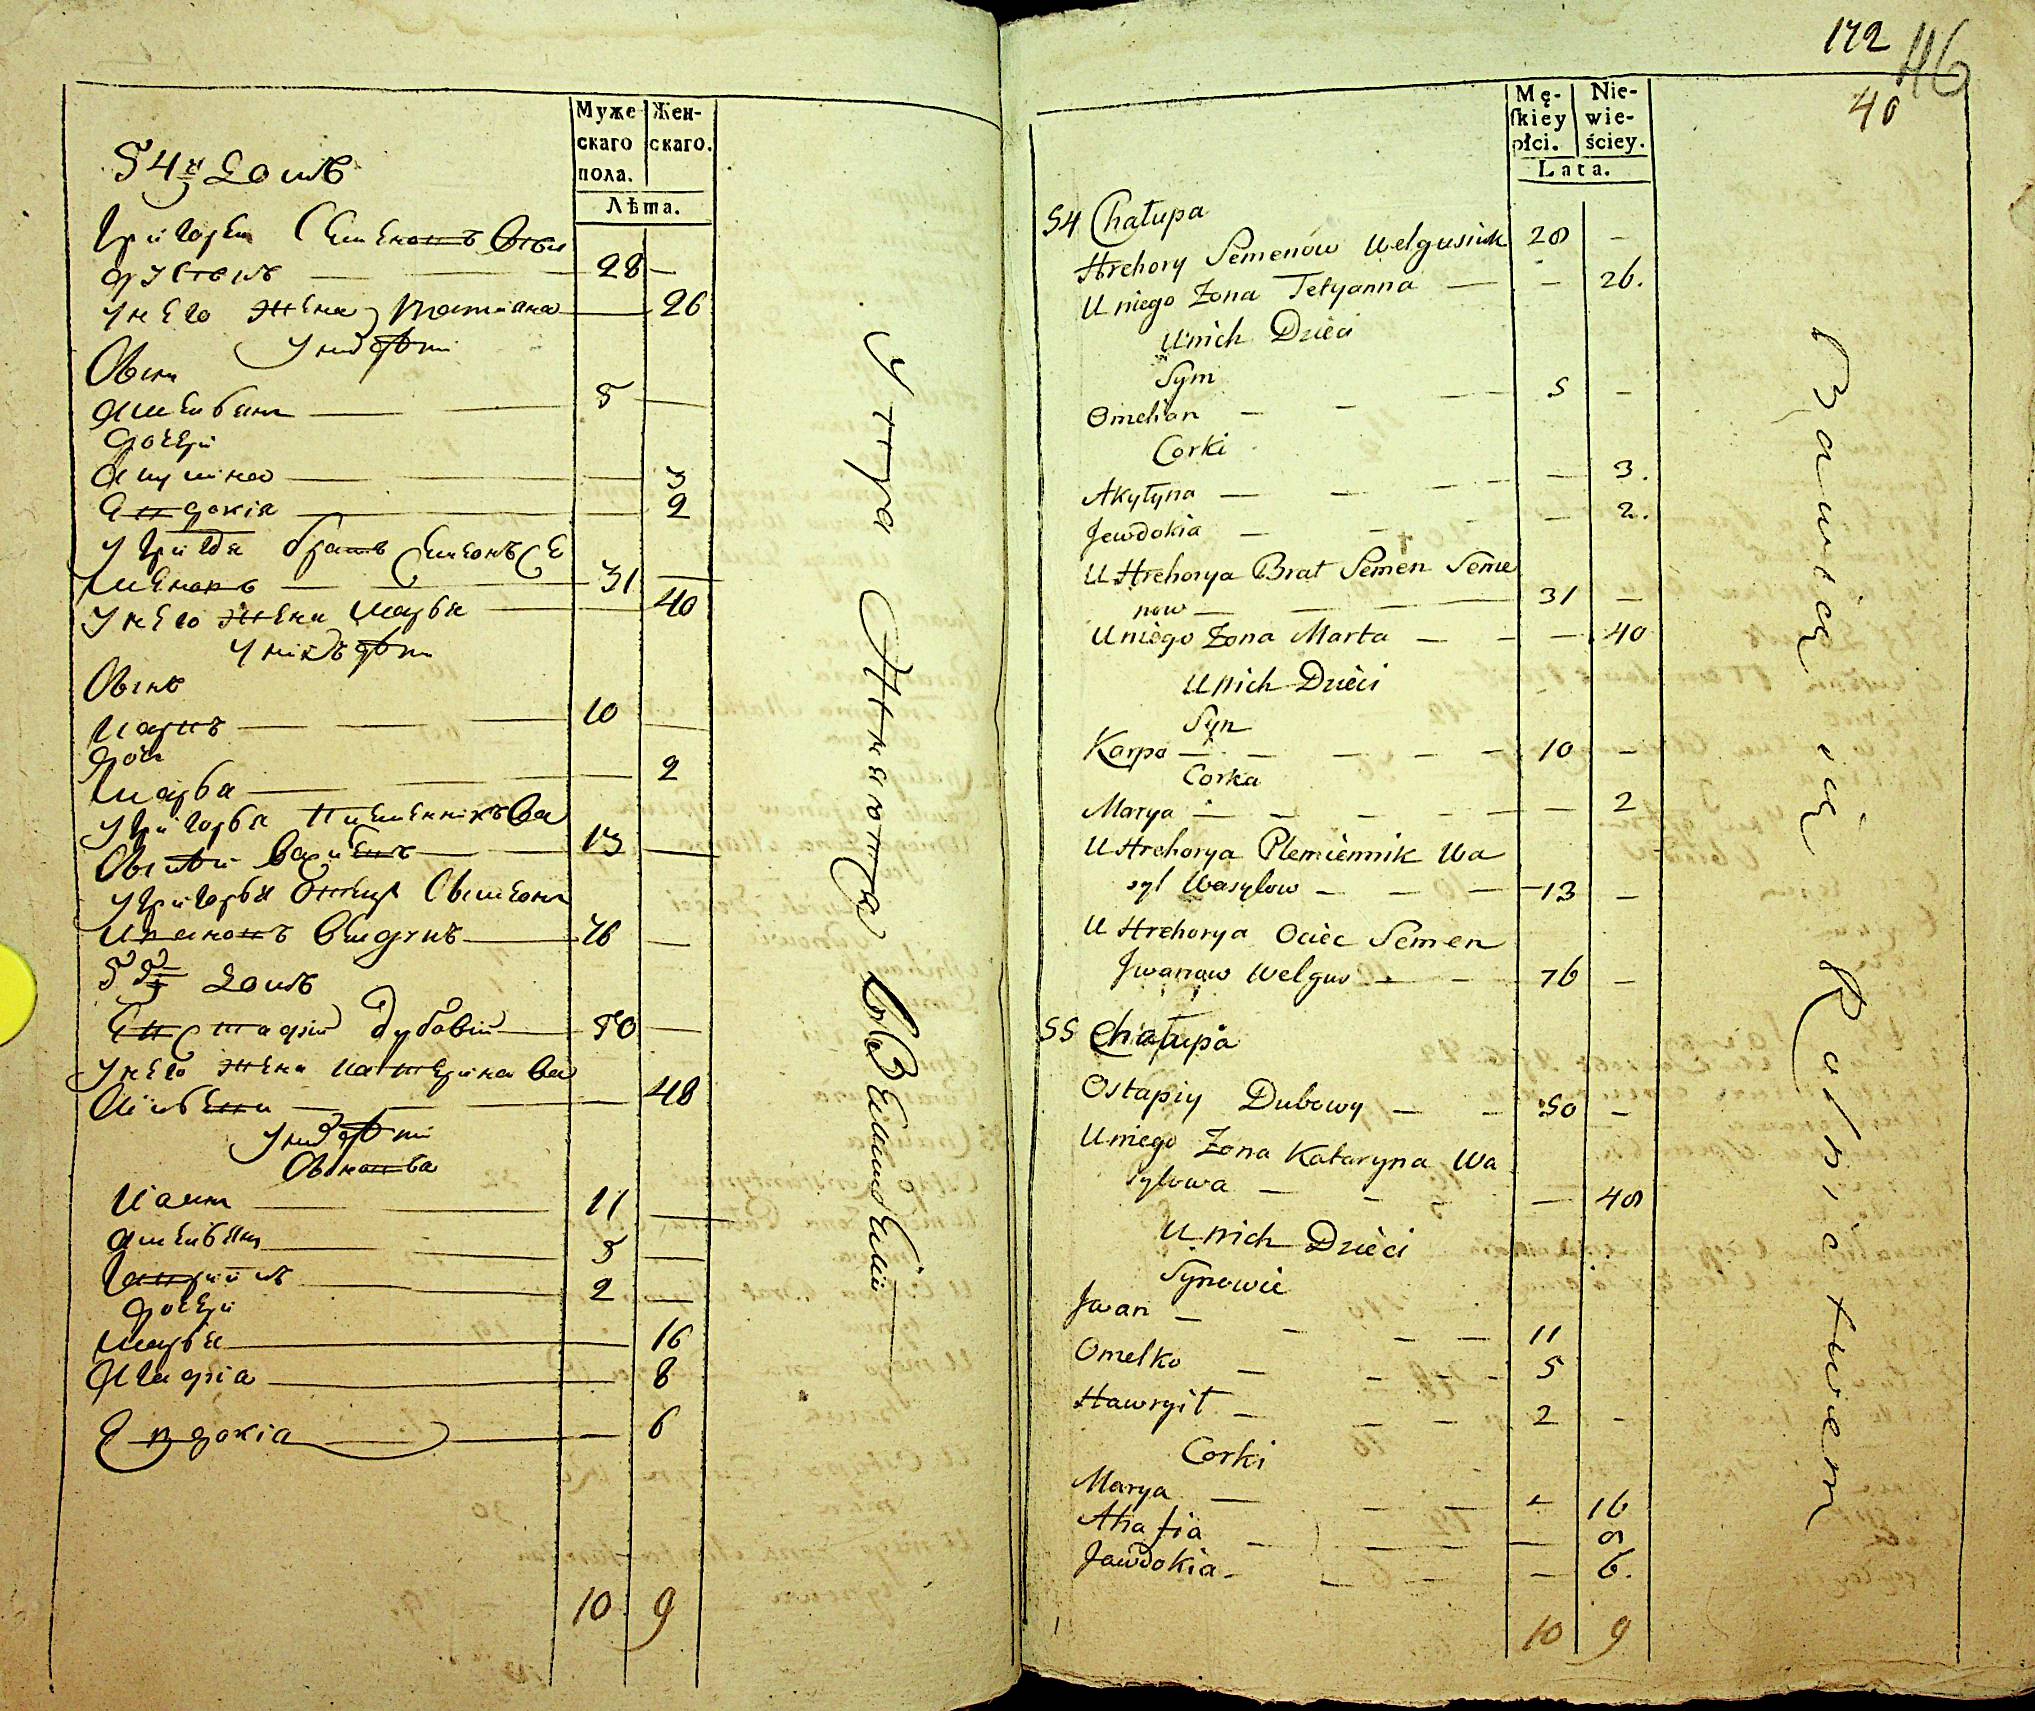 Муже
скаго
пола.
Жен-
скаго.
Лѣта.
54й Домъ
Григорей Семеновъ
28
У него жена Татіана 26
У них дѣти
Сынъ
Омельянъ 5
Дочери
Акулина 3
Евдокія 2
У Григорья братъ Семенъ Се
меновъ 31
У него жена Марѳа 40
У нихъ дѣти
Сынъ
Карпъ 10
Дочь
Марья 2
У Григорья племенникъ Ва
силей Васильевъ 13
У Григорья отецъ Семенъ
Ивановъ 76
55й Домъ
Евстафій Дубовій 50
У него жена Катерина Ва
сильева 48
У них дѣти
Сыновья
Иванъ 11
Омельянъ 5
Гаврилъ 2
Дочери
Марья 16
Агафія 8
Евдокія 6
10 9
172
46
40
Mę-
skiey
płci.
Nie-
wie-
ściey.
Lata.
54 Chałupa
Hrehory Semenów Welgusiuk 28 —
U niego Zona Tetyanna — — 26.
U nich Dzieci
Sym
Omelian — — — 5 —
Corki
Akyłyna — — — — 3.
Jewdokia — — — — 2.
U Hrehorya Brat Semen Seme
now — — — 31 —
U niego Zona Marta — — — 40
U nich Dzieci
Syn
Karpo — — — — — 10 —
Corka
Marya — — — — — — 2
U Hrehorya Plemiennik Wa
syl Wasylow — — — 13 —
U Hrehorya Ociec Semen
Jwanow Welgus — — 76 —
55 Chałupa
Ostapiy Dubowy — — 50 —
U niego Zona Kataryna Wa
sylowa — — — 48
U nich Dzieci
Synowie
Jwan — — — — 11
Omelko — — — — 5
Hawrył — — — 2 —
Corki
Marya — — — — 16
Ahafia — — — — 8
Jawdokia — — — — 6.
10 9
Bawią się Rolnictwem